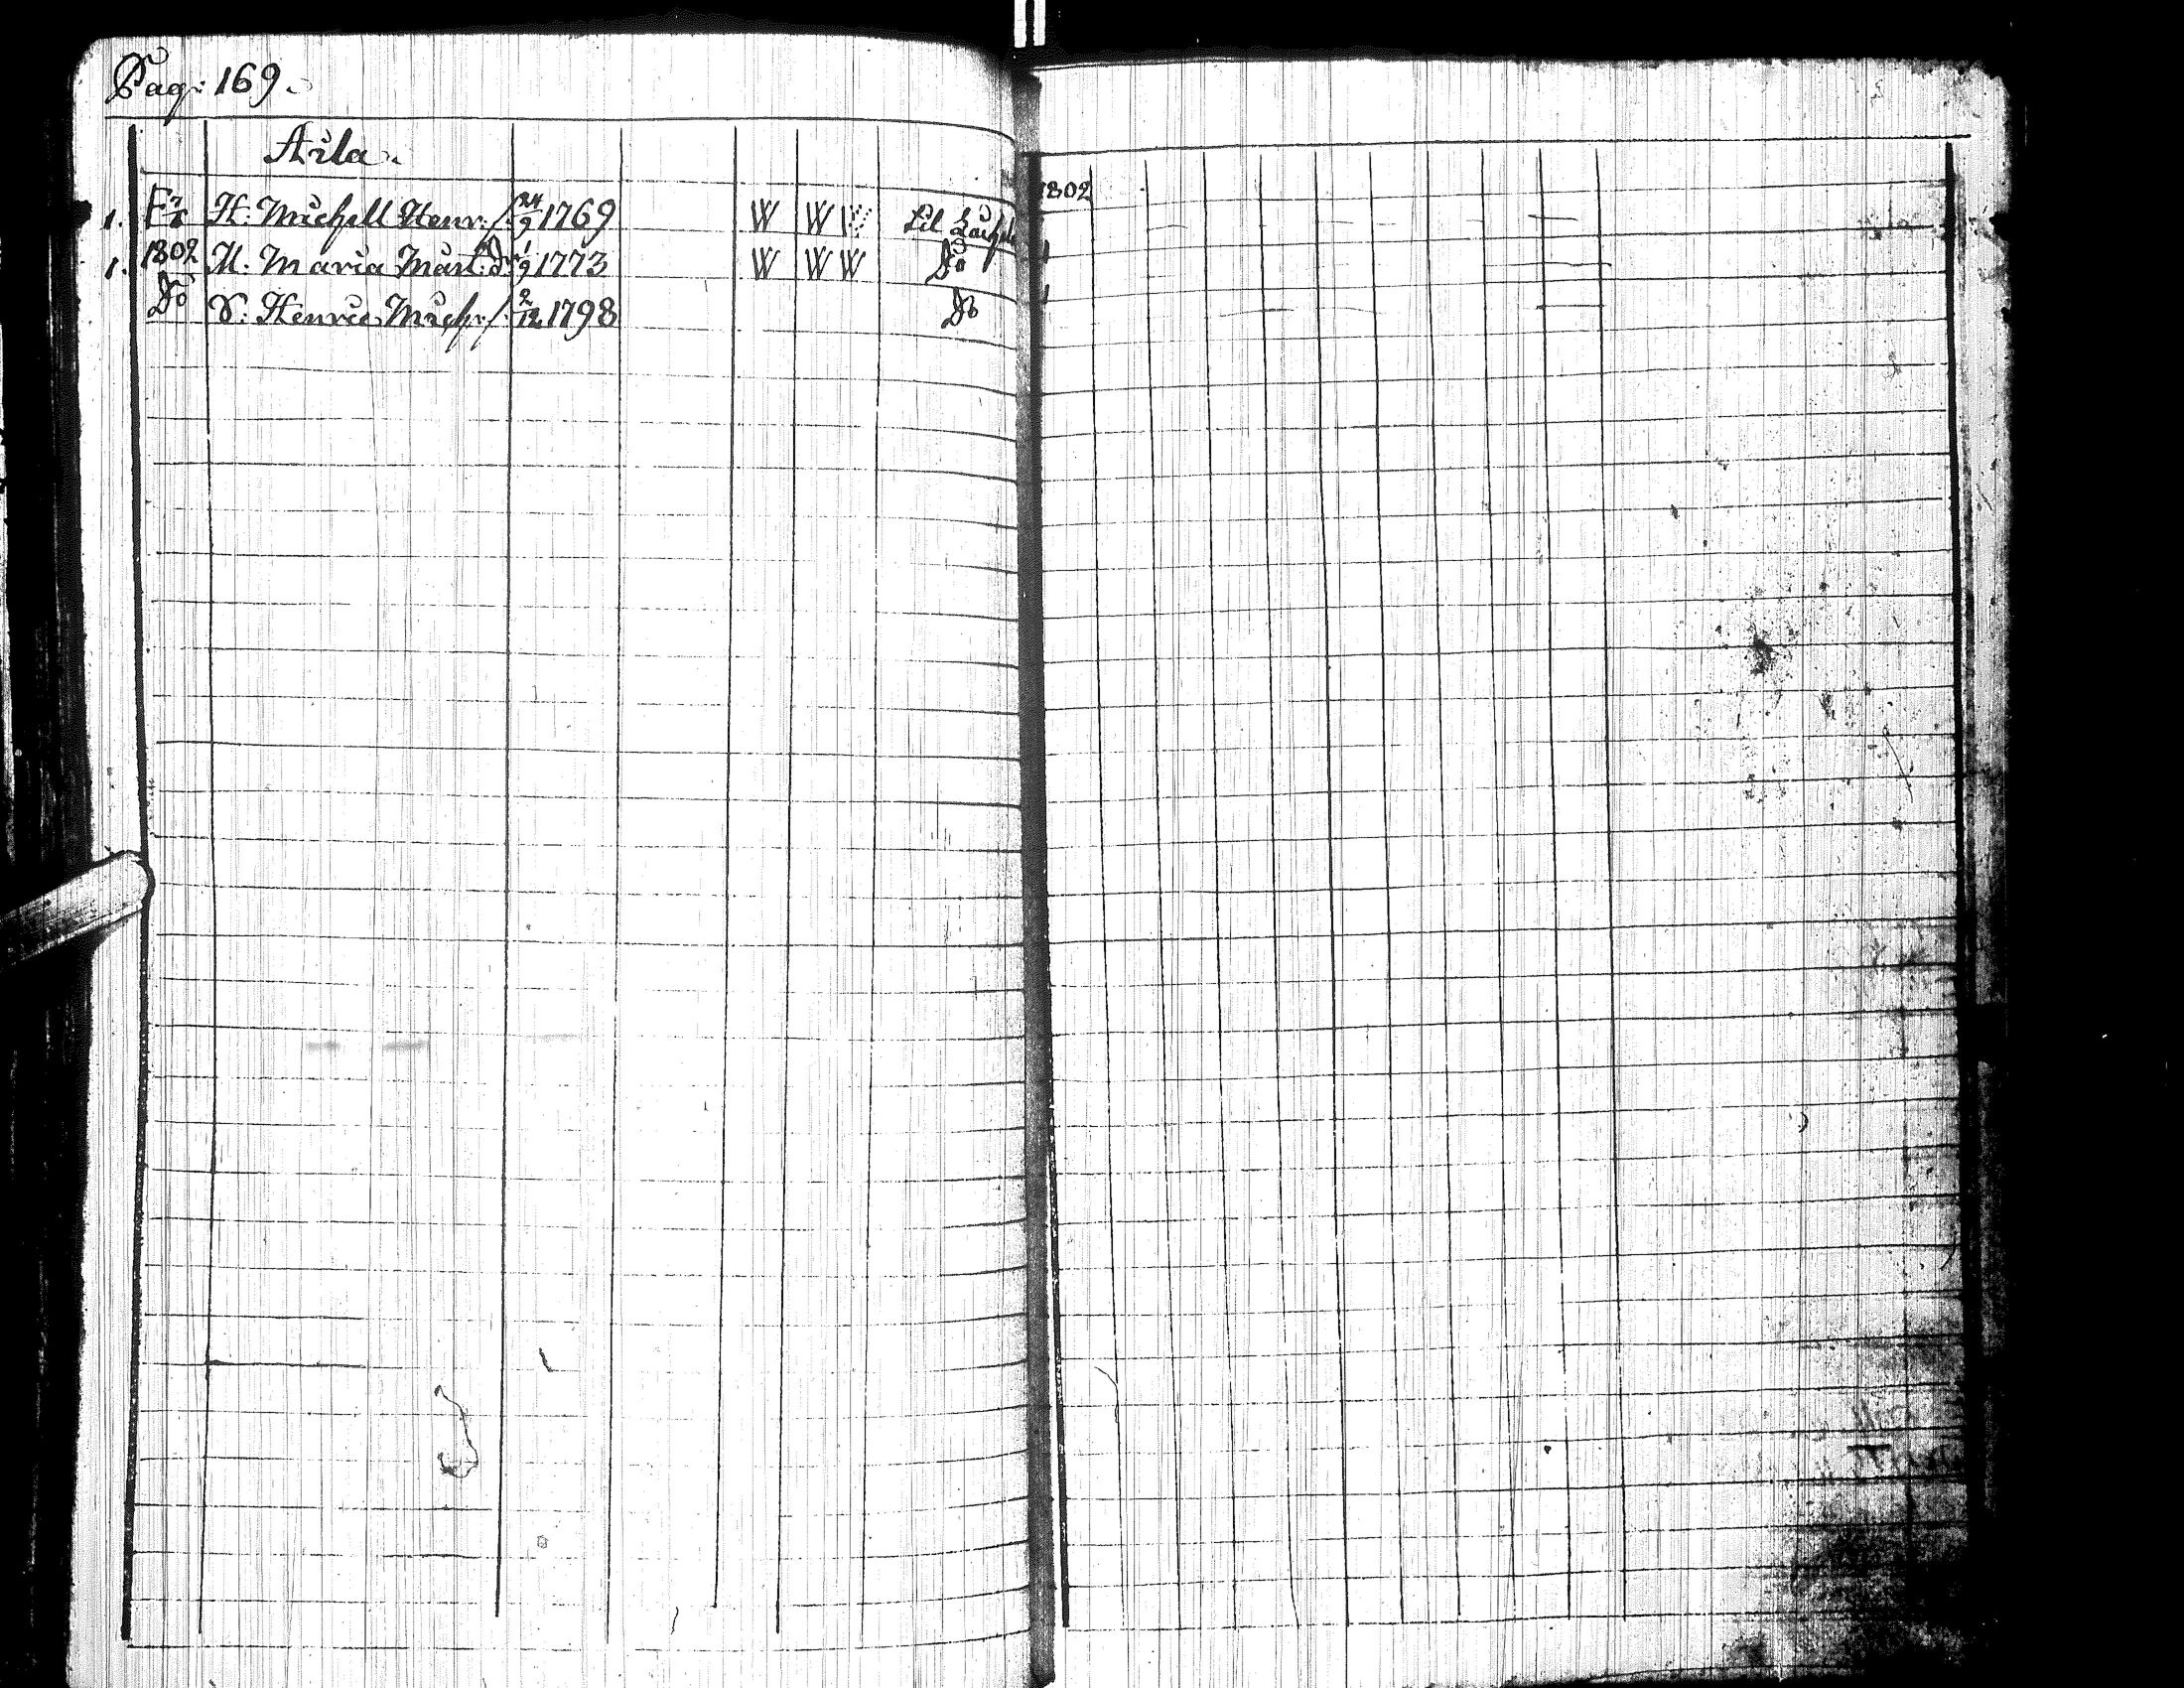 Pag: 169.
Aila.
1802
1. F 7/6 H: Michell Henr: s: 24/9 1769 W W W Lil
1. 1802 M. Maria Mårt: d: 1/9 1773 W W W Do 1
Do S: Henric Mich: s: 2/12 1798 Do 1